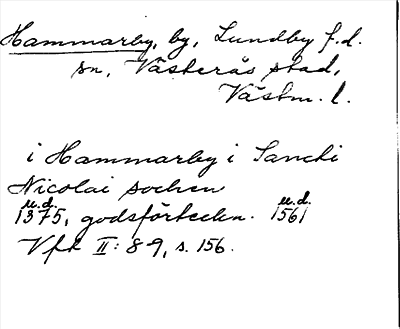 Hammarby, by, Lundby f.d.
sn, Västerås stad,
Västm. l.
i Hammarby i Sancti
Nicolai sochen
u.d. u.d.
1375, godsförteckn. 1561
Vft II: 8-9, s. 156.